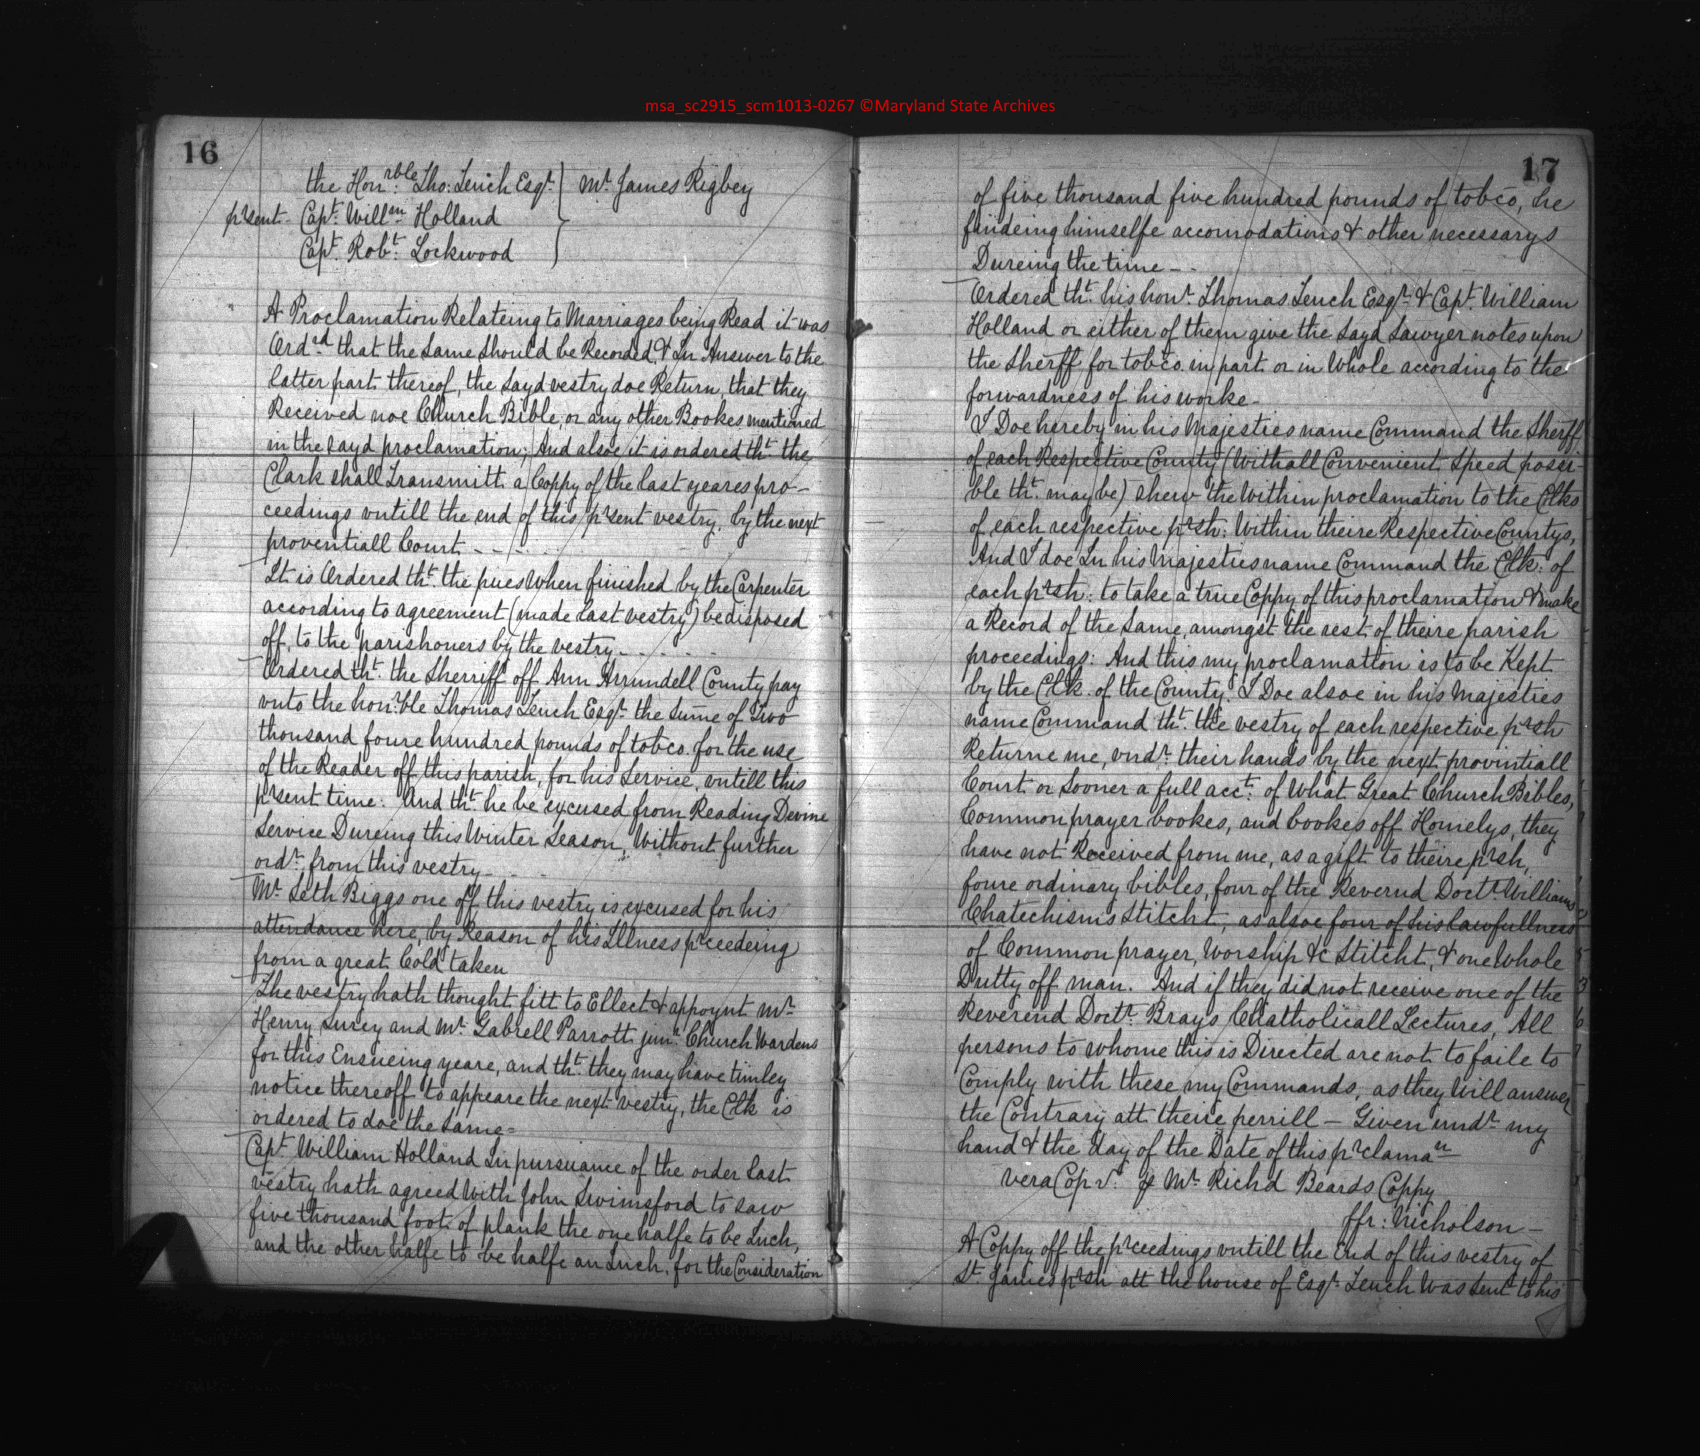 msa_sc2915_scm1013-0267 ©Maryland State Archives
16
the Honrble: Tho: Tench Esqr. } Mr. James Rigbey
prsent Capt. Willm Holland
Capt. Robt: Lockwood
A Proclamation Relateing to Marriages being Read it was
Ordrd that the same should be Recorded, & In Answer to the
latter part thereof, the sayd vestry doe Return, that they
Received noe Church Bible, or any other Bookes mentioned
in the sayd proclamation; And alsoe it is ordered tht. the
Clark shall Transmitt a Coppy of the last yeares pro-
ceedings vntill the end of this prsent vestry, by the next
proventiall Court - - - -
It is Ordered tht. the pues when finished by the Carpenter
according to agreement (made last vestry) be disposed
off, to the parishoners by the vestry - - - - -
Ordered tht. the Sherriff off Ann Arrundell County pay
vnto the honrble Thomas Tench Esqr. the sume of Two
thousand foure hundred pounds of tobco. for the use
of the Reader off this parish, for his Service, vntill this
prsent time: And tht. he be excused from Reading Devine
Service Dureing this Winter Season, Without further
ordr. from this vestry - - -
Mr. Seth Biggs one off this vestry is excused for his
attendance here, by Reason of his Illness prceedeing
from a great Cold taken
The vestry hath thought fitt to Ellect & appoynt Mr.
Henry Surey and Mr. Gabrell Parrott junr. Church Wardens
for this Ensueing yeare, and tht. they may have timley
notice thereoff to appeare the next vestry, the Clk is
ordered to doe the same=
Capt. William Holland In pursuance of the order last
vestry hath agreed With John Swinsford to saw
five thousand foot of plank the one halfe to be Inch,
and the other halfe to be halfe an Inch, for the Consideration
17
of five thousand five hundred pounds of tobco, he
findeing himselfe accomodations & other necessarys
Dureing the time - -
Ordered tht. his honr. Thomas Tench Esqr. & Capt. William
Holland or either of them give the Sayd Sawyer notes upon
the Sherff for tobco. in part or in Whole according to the
forwardness of his worke -
I Doe hereby in his Majesties name Command the Sherff
of each Respective County (With all Convenient Speed possi-
ble tht. may be) shew the Within proclamation to the Clks
of each respective prsh: Within theire Respective Countys,
And I doe In his Majesties name Command the Clk: of
each prsh: to take a true Coppy of this proclamation & make
a Record of the Same, amongst the rest of theire parish
proceedings: And this my proclamation is to be Kept
by the Clk. of the County. I Doe alsoe in his Majesties
name Command tht. the vestry of each respective prsh
Returne me, vndr. their hands by the next provintiall
Court or Sooner a full acct: of What Great Church Bibles,
Common prayer bookes, and bookes off Homelys, they
have not Received from me, as a gift to theire prsh,
foure ordinary bibles, four of the Revernd Doctr. Williams
Chatechisms Stitcht, as alsoe four of his lawfullness
of Common prayer, Worship &c Stitcht, & one Whole
Dutty off man. And if they did not receive one of the
Reverend Doctr. Brays Chatholicall Lectures, All
persons to whome this is Directed are not to faile to
Comply with these my Commands, as they Will answer
the Contrary att theire perrill - Given undr. my
hand & the day of the Date of this prclaman
vera Cop v. Mr. Richd Beards Coppy
ffr: Nicholson -
A Coppy off the prceedings vntill the End of this vestry of
St. James prsh att the house of Esqr. Tench Was sent to his